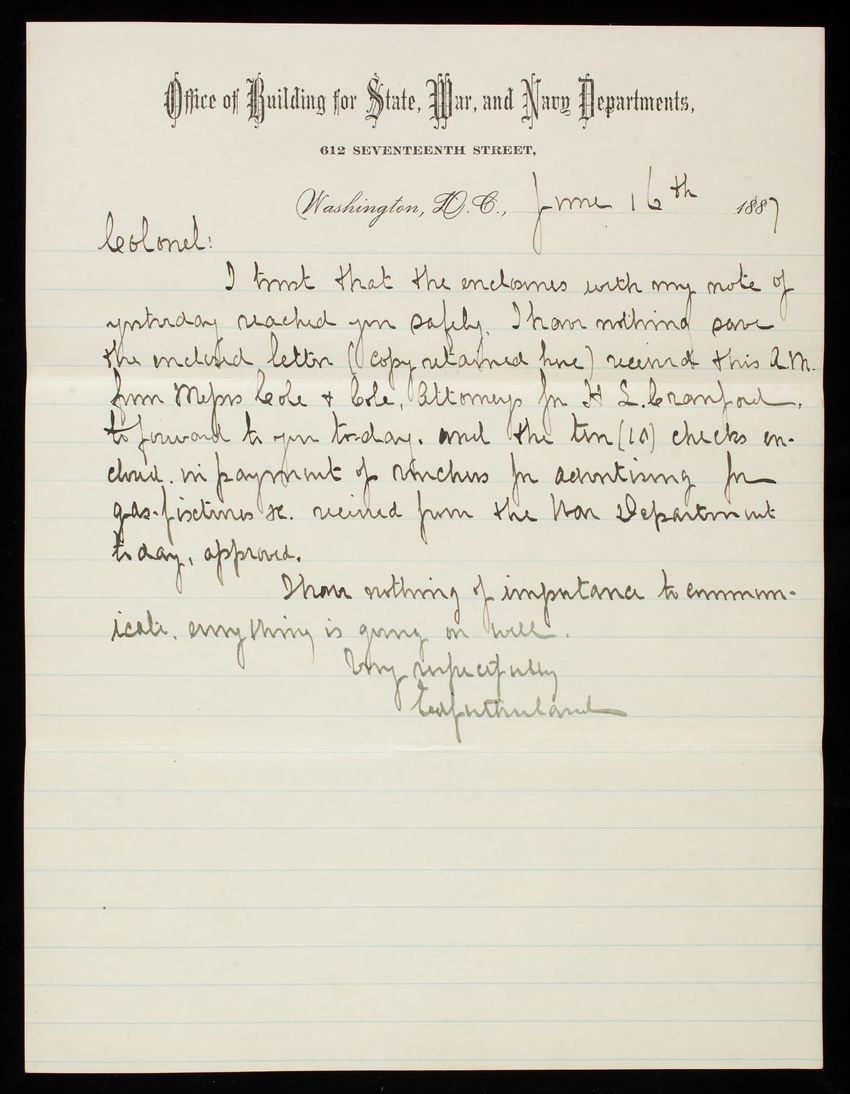 Office of Building for State, War, and Navy Departments,
612 SEVENTEENTH STREET,
Washington, D.C., June 16th 1887
Colonel:
I trust that the enclosures with my note of
yesterday reached you safely. I have nothing save
the enclosed letter (copy retained here) received this A.M.
from Messrs Cole & Cole, Attorneys for H L. Cranford,
to forward to you to-day. and the ten (10) checks en-
closed. in payment of vouchers for advertising for
gas-fixtures &c. received from the War Department
to day, approved.
I have nothing of importance to commun-
icate. everything is going on well.
Very respectfully